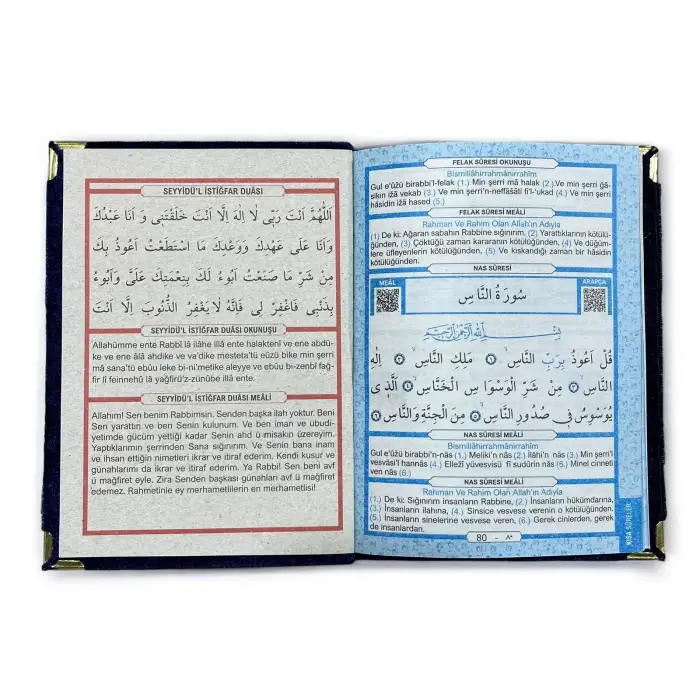 SEYYİDÜ'L İSTİĞFAR DUÂSI
اَللّٰهُمَّ اَنْتَ رَبِّى لَا اِلٰهَ اِلَّا اَنْتَ خَلَقْتَنِى وَ اَنَا عَبْدُكَ
وَاَنَا عَلَى عَهْدِكَ وَوَعْدِكَ مَا اسْتَطَعْتُ اَعُوذُ بِكَ
مِنْ شَرِّ مَا صَنَعْتُ اَبُوءُ لَكَ بِنِعْمَتِكَ عَلَىَّ وَاَبُوءُ
بِذَنْبِى فَاغْفِرْ لِى فَاِنَّهُ لَا يَغْفِرُ الذُّنُوبَ اِلَّا اَنْتَ
SEYYİDÜ'L İSTİĞFAR DUÂSI OKUNUŞU
Allahümme ente Rabbî lâ ilâhe illâ ente halaktenî ve ene abdü-
ke ve ene âlâ ahdike ve va'dike mesteta'tü eûzü bike min şerri
mâ sana'tü ebûu leke bi-ni'metike aleyye ve ebûu bi-zenbî fağ-
fir lî feinnehû lâ yağfirü'z-zünûbe illâ ente.
SEYYİDÜ'L İSTİĞFAR DUÂSI MEÂLİ
Allahım! Sen benim Rabbimsin. Senden başka ilah yoktur. Beni
Sen yarattın ve ben Senin kulunum. Ve ben iman ve ubudi-
yetimde gücüm yettiği kadar Senin ahd ü misakın üzereyim.
Yaptıklarımın şerrinden Sana sığınırım. Ve Senin bana inam
ve ihsan ettiğin nimetleri ikrar ve itiraf ederim. Kendi kusur ve
günahlarımı da ikrar ve itiraf ederim. Ya Rabbi! Sen beni avf
ü mağfiret eyle. Zira Senden başkası günahları avf ü mağfiret
edemez. Rahmetinle ey merhametlilerin en merhametlisi!
FELAK SÛRESİ OKUNUŞU
Bismillâhirrahmânirrahîm
Gul e'ûzü birabbi'l-felak (1.) Min şerri mâ halak (2.) Ve min şerri ğâ-
sikin izâ vekab (3.) Ve min şerri'n-neffâsâti fi'l-'ukad (4.) Ve min şerri
hâsidin izâ hased (5.)
FELAK SÛRESİ MEÂLİ
Rahman Ve Rahim Olan Allah'ın Adıyla
(1) De ki: Ağaran sabahın Rabbine sığınırım, (2) Yarattıklarının kötülü-
ğünden, (3) Çöktüğü zaman kararanın kötülüğünden, (4) Ve düğüm-
lere üfleyenlerin kötülüğünden, (5) Ve kıskandığı zaman bir hâsidin
kötülüğünden.
NAS SÛRESİ
MEÂL
ARAPÇA
سُورَةُ النَّاسِ
بِسْمِ اللّٰهِ الرَّحْمٰنِ الرَّحِيمِ
قُلْ اَعُوذُ بِرَبِّ النَّاسِ ۙ ١ مَلِكِ النَّاسِ ۙ ٢ اِلٰهِ
النَّاسِ ۙ ٣ مِنْ شَرِّ الْوَسْوَاسِ الْخَنَّاسِ ۙ ٤ اَلَّذِى
يُوَسْوِسُ فِى صُدُورِ النَّاسِ ۙ ٥ مِنَ الْجِنَّةِ وَالنَّاسِ ٦
NAS SÛRESİ MEÂLİ
Bismillâhirrahmânirrahîm
Gul e'ûzü birabbi'n-nâs (1.) Meliki'n nâs (2.) İlâhi'n nâs (3.) Min şerri'l
vesvâsi'l hannâs (4.) Ellezî yüvesvisü fî sudûrin nâs (6.) Minel cinneti
ven nâs (6.)
NAS SÛRESİ MEÂLİ
Rahman Ve Rahim Olan Allah'ın Adıyla
(1.) De ki: Sığınırım insanların Rabbine, (2.) İnsanların hükümdarına,
(3.) İnsanların ilahına, (4.) Sinsice vesvese verenin o kötülüğünden.
(5.) İnsanların sinelerine vesvese veren, (6.) Gerek cinlerden, gerek
de insanlardan.
80 - ٨٠
KISA SÛRELER